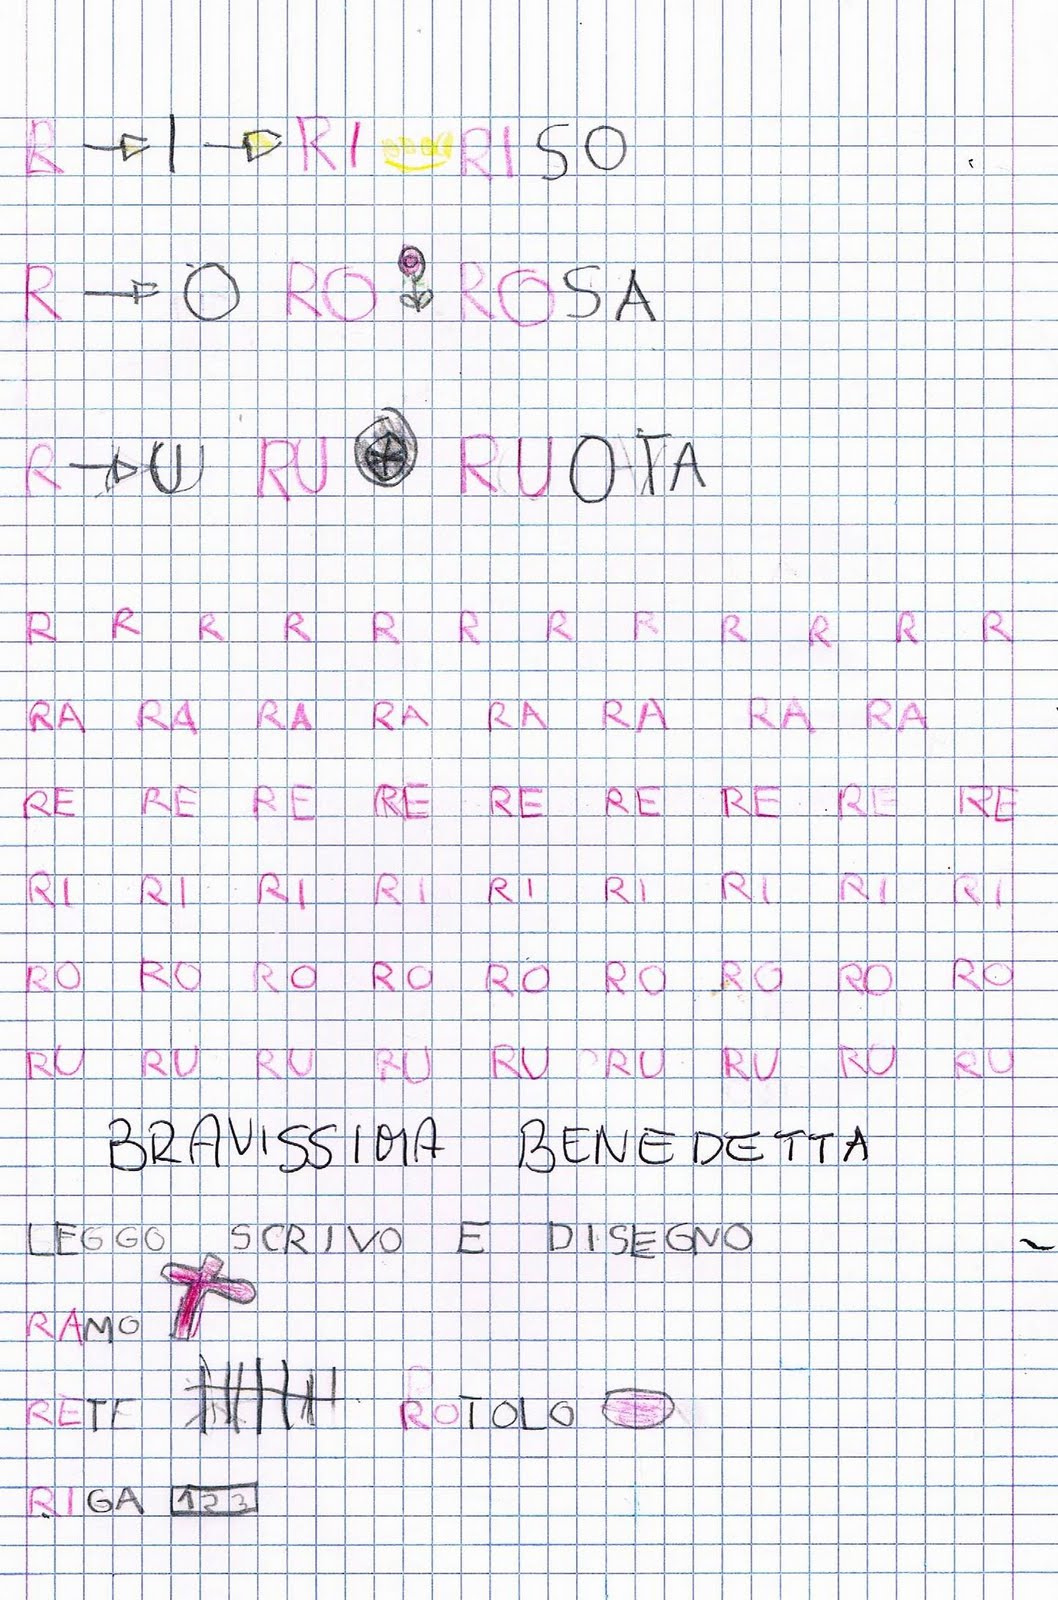 R I RI RISO
R O RO ROSA
R U RU RUOTA
R R R R R R R R R R R R
RA RA RA RA RA RA RA RA
RE RE RE RE RE RE RE RE RE
RI RI RI RI RI RI RI RI RI
RO RO RO RO RO RO RO RO RO
RU RU RU RU RU RU RU RU RU
BRAVISSIMA BENEDETTA
LEGGO SCRIVO E DISEGNO
RAMO
RETE ROTOLO
RIGA 123